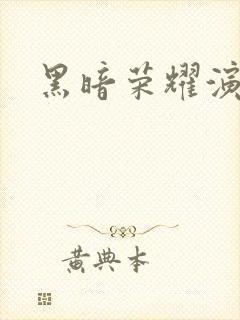 黑暗荣耀演
黄典本